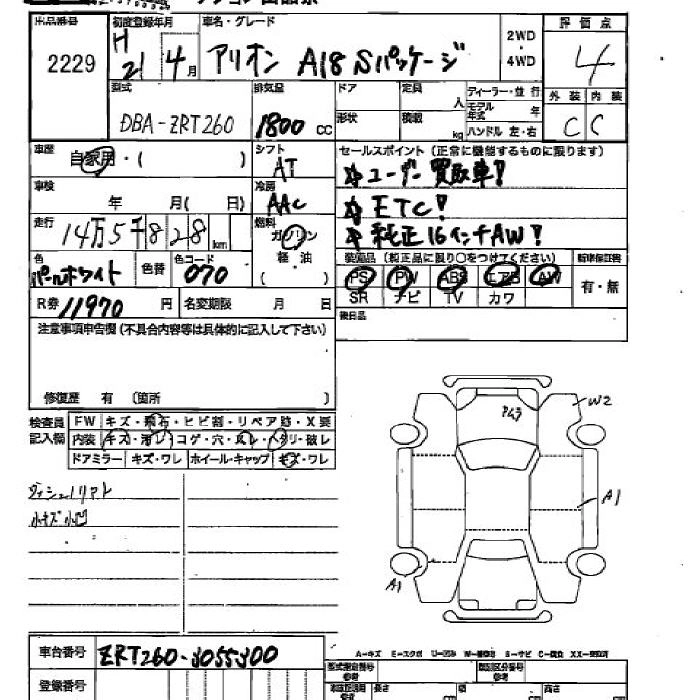 出品番号 初度登録年月 車名・グレード 評価点
2229 H21 4月 アリオン A18 Sパッケージ 2WD・4WD 4
型式 排気量 ドア 定員 人 ディーラー・並行 外装 内装
DBA-ZRT260 1800cc 形状 積載 kg モデル年式 年 ハンドル 左・右 C C
車歴 自家用・( ) シフト AT
セールスポイント (正常に機能するものに限ります)
☆ユーザー買取車!
車検 年 月( 日) 冷房 AAC
☆ETC!
走行 14万5千828km 燃料 ガソリン 軽油 ( )
☆純正16インチAW!
色 パールホワイト 色替 色コード 070
装備品 (純正品に限り〇をつけてください) 新車保証書
PS PW ABS エアB AW 有・無
SR ナビ TV カワ
R券 11970円 名変期限 月 日
後日品
注意事項申告欄 (不具合内容等は具体的に記入して下さい)
修復歴 有 (箇所 )
検査員記入欄
FW キズ・飛石・ヒビ割・リペア跡・X要
内装 キズ・汚レ・コゲ・穴・
ドアミラー キズ・ワレ ホイール・キャップ キズ・ワレ
小キズ小凹
W2
A1
A1
車台番号 ZRT260-3055300
A-キズ E-エクボ U-凹み
登録番号
型式指定番号 類別区分番号
長さ 幅 高さ